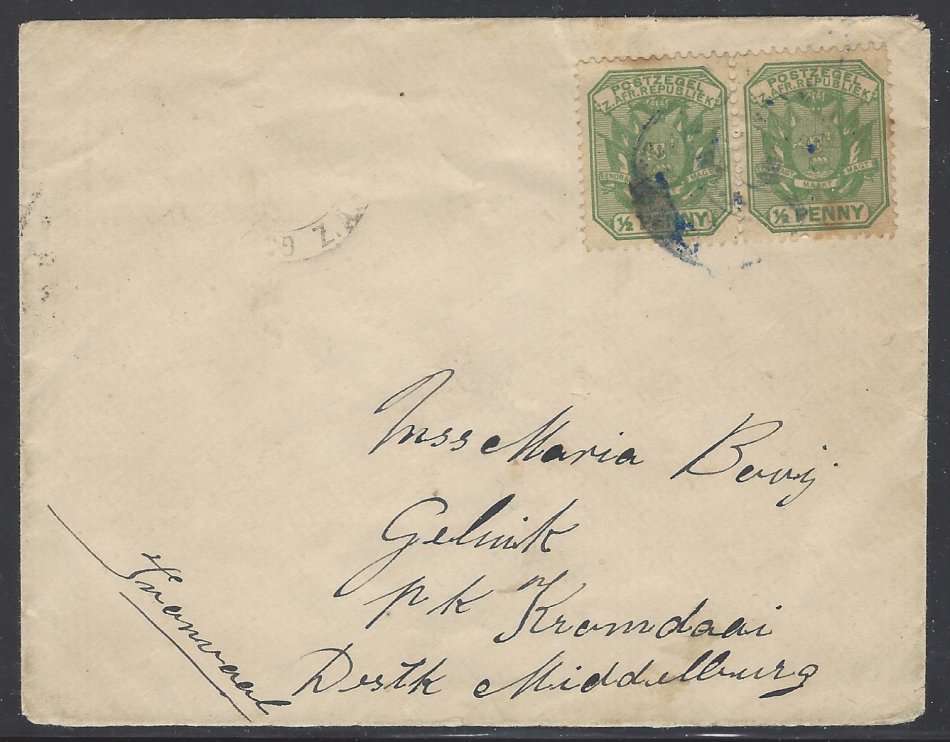 POSTZEGEL
Z. AFR. REPUBLIEK
EENDRA MAGT
½ PENNY
POSTZEGEL
Z. AFR. REPUBLIEK
MAAKT MAGT
½ PENNY
Z.A
Mss Maria Booij
Geluik
p k Kromdaai
Distk Middelburg
Transvaal